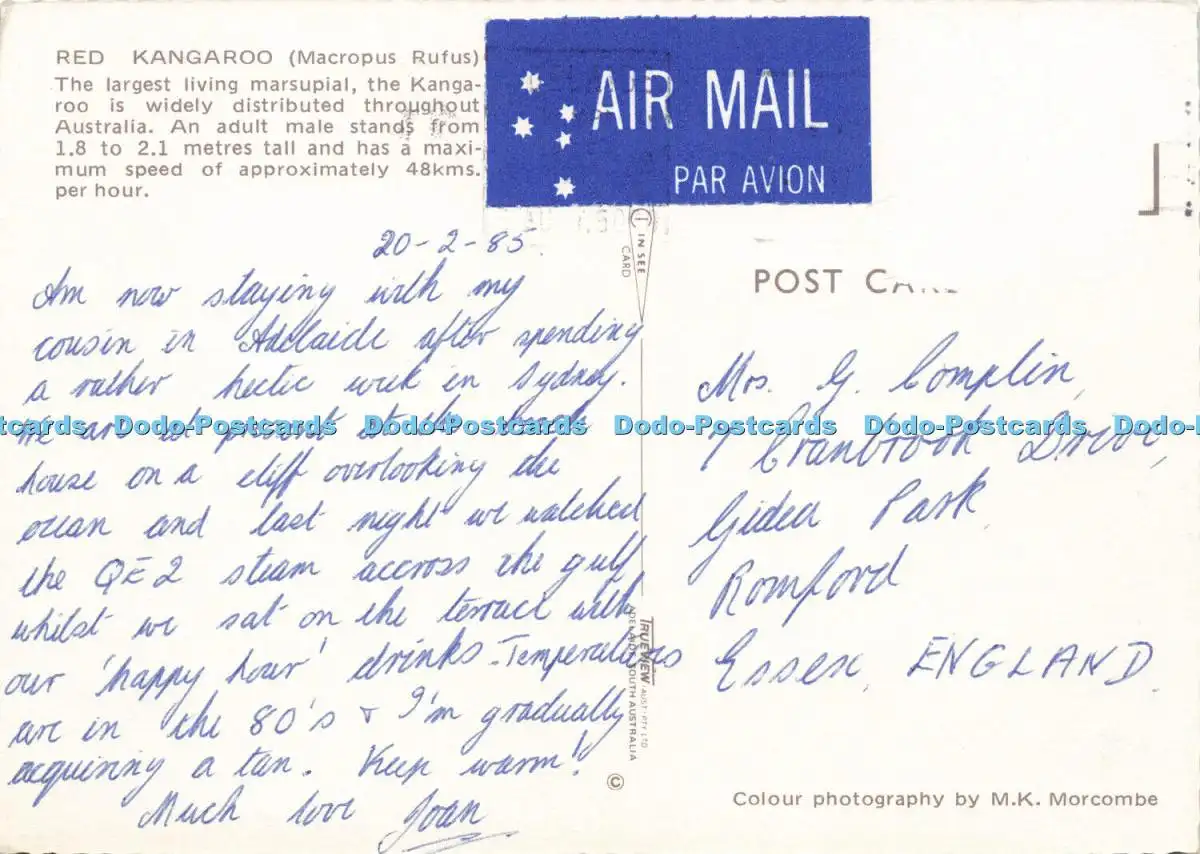 RED KANGAROO (Macropus Rufus)
The largest living marsupial, the Kanga-
roo is widely distributed throughout
Australia. An adult male stands from
1.8 to 2.1 metres tall and has a maxi-
mum speed of approximately 48kms.
per hour.
AIR MAIL
PAR AVION
20-2-85.
Am now staying with my
cousin in Adelaide after spending
a rather hectic week in Sydney.
We are at present at the beach
house on a cliff overlooking the
ocean and last night we watched
the QE2 steam accross the gulf
whilst we sat on the terrace with
our 'happy hour' drinks - Temperatures
are in the 80's + I'm gradually
acquiring a tan. Keep warm!
Much love Joan
IN SEE
CARD
TRUEVIEW AUST. PTY LTD
ADELAIDE SOUTH AUSTRALIA
©
POST
Mrs. G. Complin,
7 Cranbrook Drive,
Gidea Park,
Romford
Essex, ENGLAND.
Colour photography by M.K. Morcombe
Dodo-Postcards Dodo-Postcards Dodo-Postcards Dodo-Postcards Dodo-Postcards